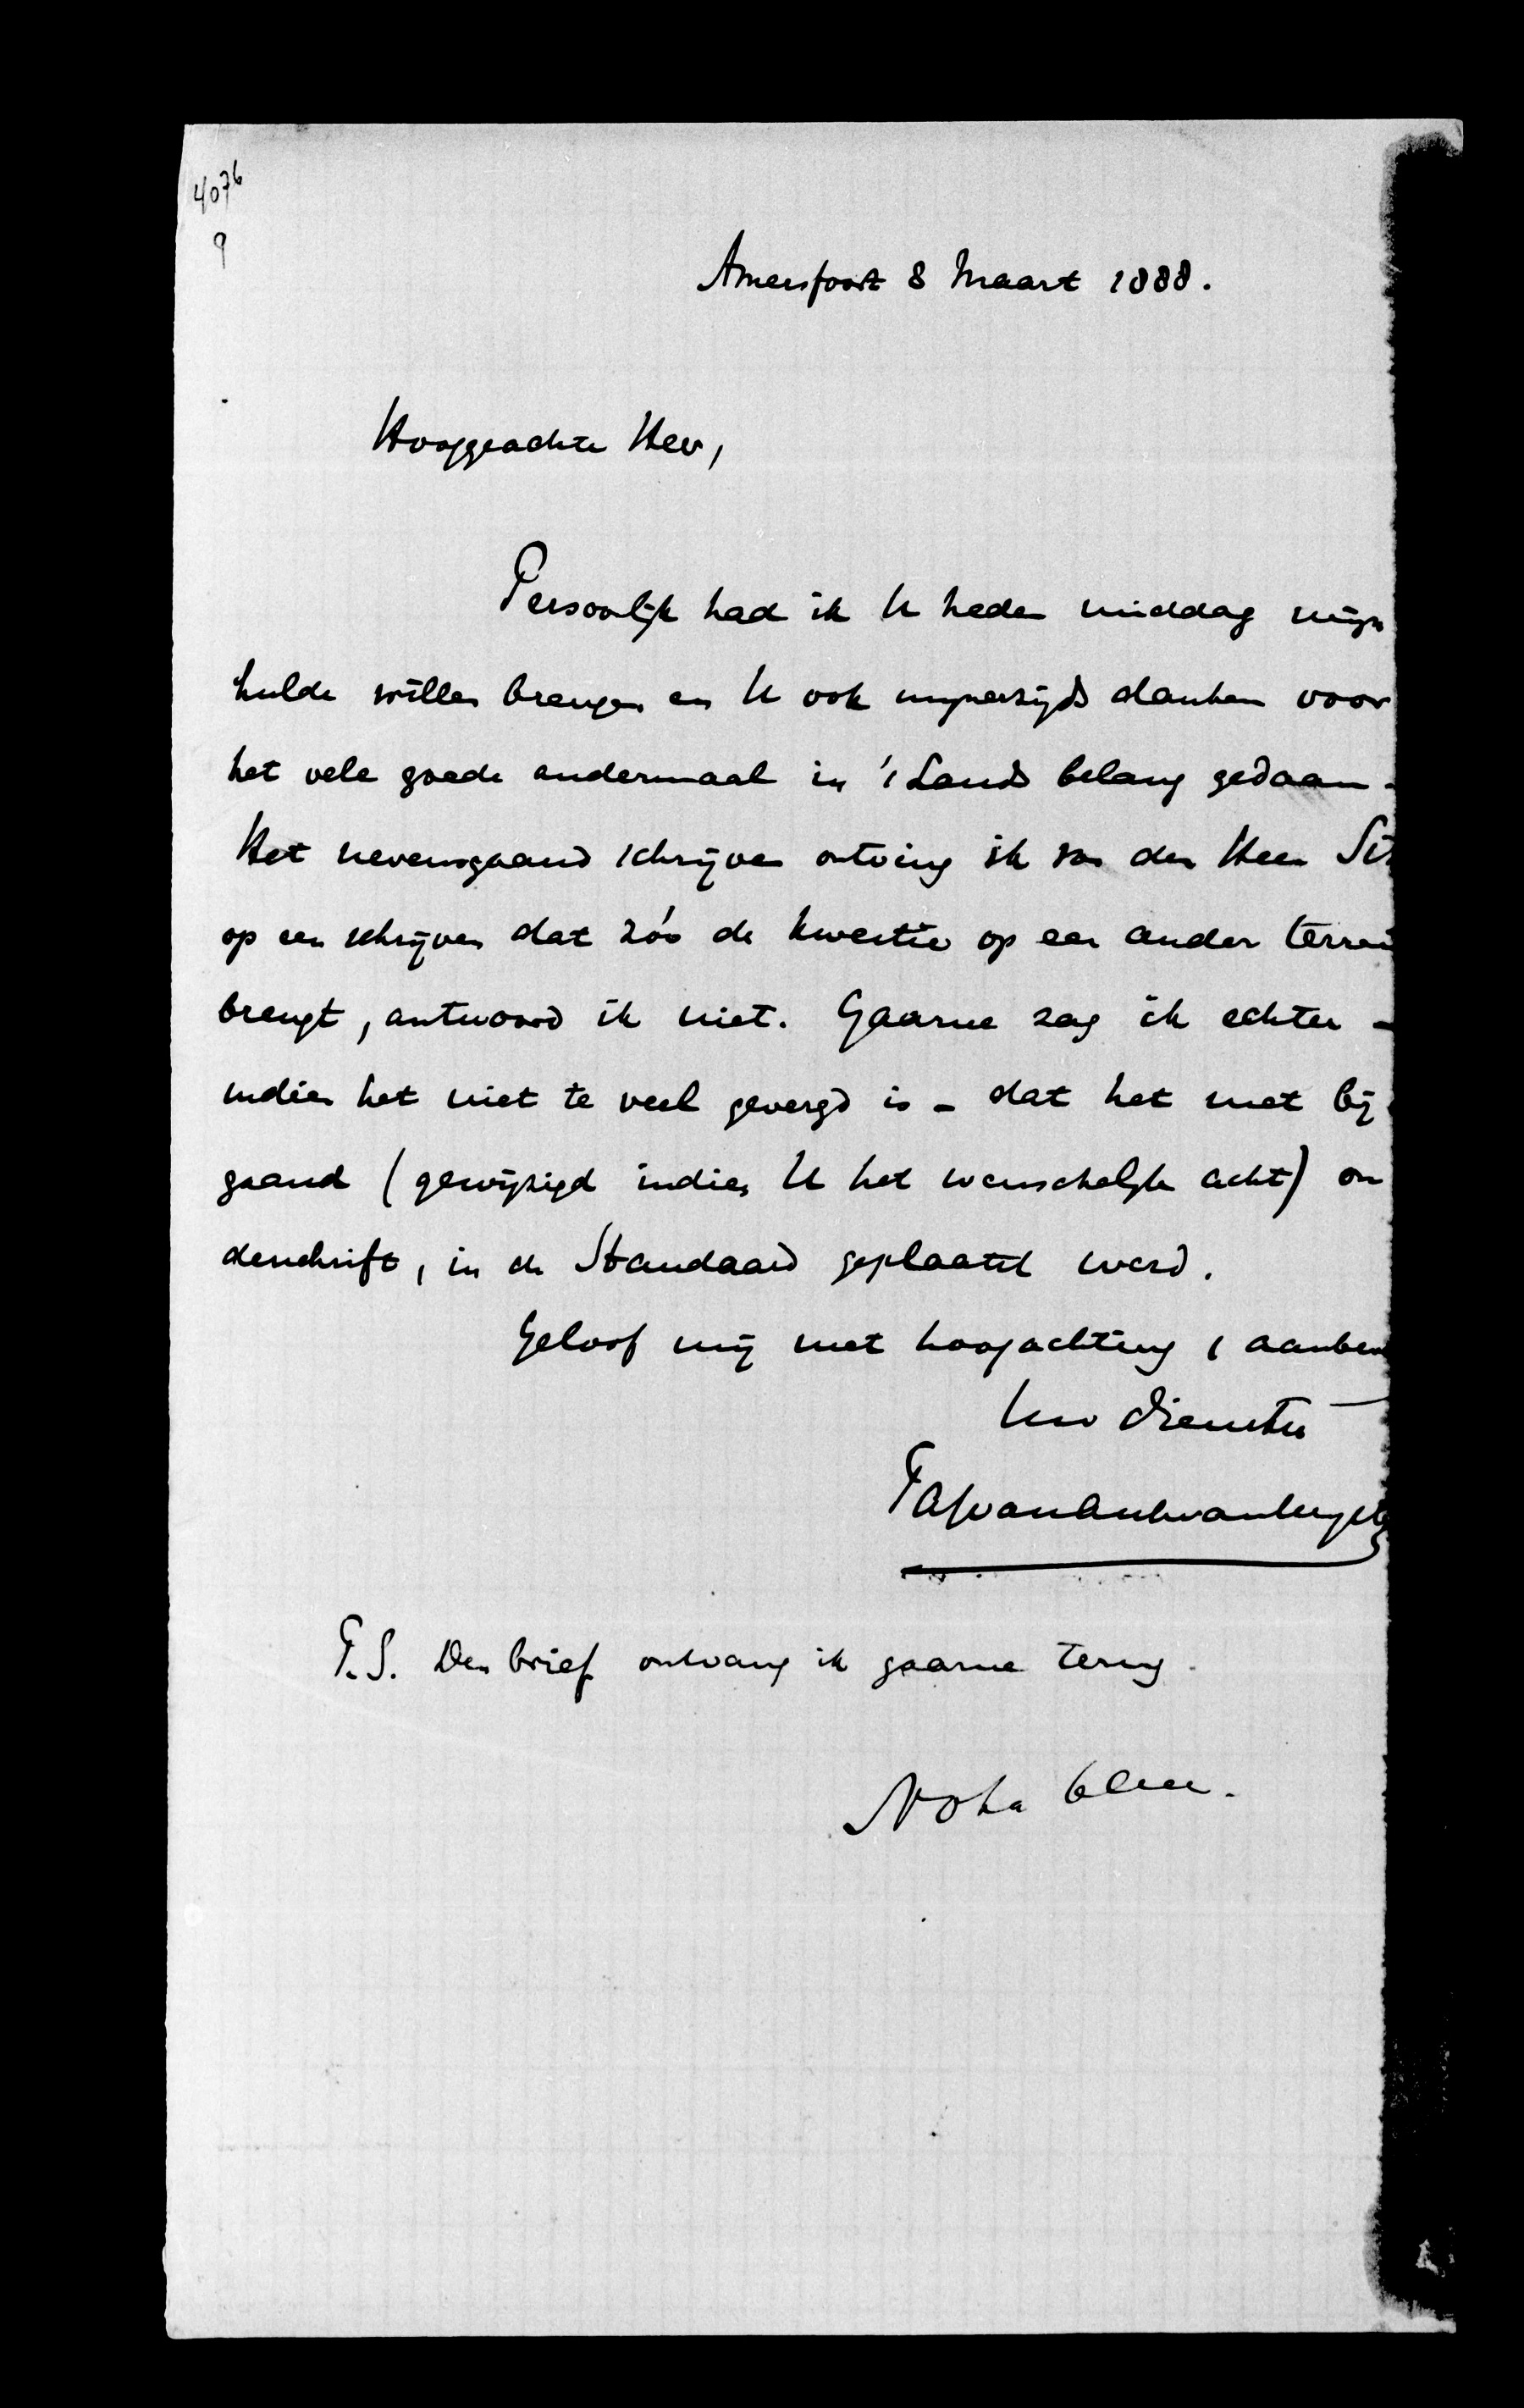 4076
9
Amersfoort 8 Maart 1888.
Hooggeachte Heer,
Persoonlijk had ik U heden middag mijn
hulde willen brengen en U ook mijnerzijds danken voor
het vele goede andermaal in 's Lands belang gedaan.
Het nevensgaand schrijven ontving ik van den Heer
op een schrijven dat zóó de kwestie op een ander terrei
brengt, antwoord ik niet. Gaarne zag ik echter -
indien het niet te veel gevergd is - dat het met bij
gaand (gewijzigd indien U het wenschelijk acht) on
derschrift, in de Standaard geplaatst werd.
Geloof mij met hoogachting,
Uw dienstw
P.S. Den brief ontvang ik gaarne terug.